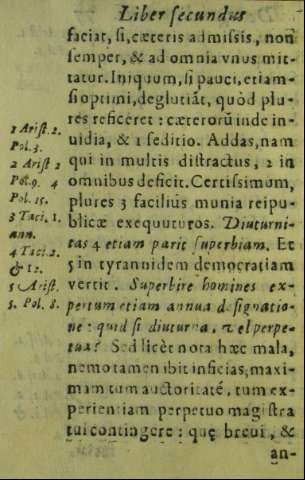 Liber secundus
faciat, si, cæteris admissis, non
semper, & ad omnia vnus mit-
tatur. Iniquum, si pauci, etiam-
si optimi, deglutiāt, quòd plu-
res reficeret : cæterorū inde in-
uidia, & 1 seditio. Addas, nam
qui in multis distractus, 2 in
omnibus deficit. Certissimum,
plures 3 facilius munia reipu-
blicæ exequuturos. Diuturni-
tas 4 etiam parit superbiam. Et
5 in tyrannidem democratiam
vertit. Superbire homines ex-
pertum etiam annua designatio-
ne : quid si diuturna, vel perpe-
tua? Sed licèt nota hæc mala,
nemo tamen ibit inficias, maxi-
mam tum auctoritaté, tum ex-
perientiam perpetuo magistra
tui contingere : quę breui, &
an-
1 Arist. 2.
Pol. 3.
2 Arist 2
Pol. 9. 4
Pol. 15.
3 Taci. 1.
ann.
4 Taci. 2.
& 12.
5 Arist.
5. Pol. 8.